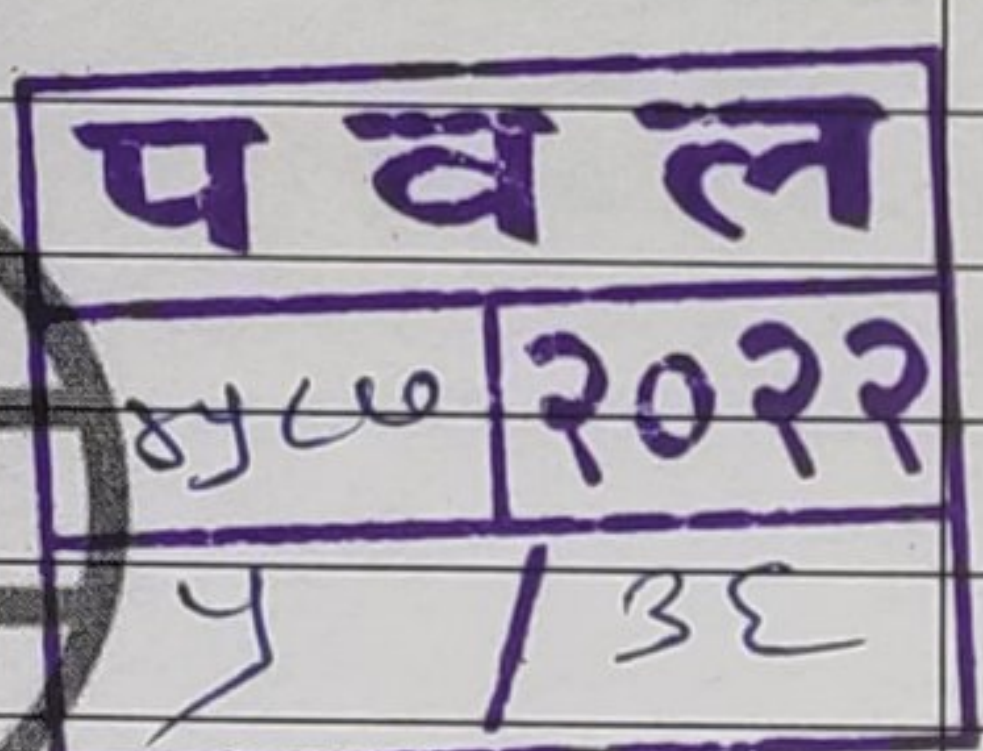 पवल
४५८७ २०२२
५ / ३६